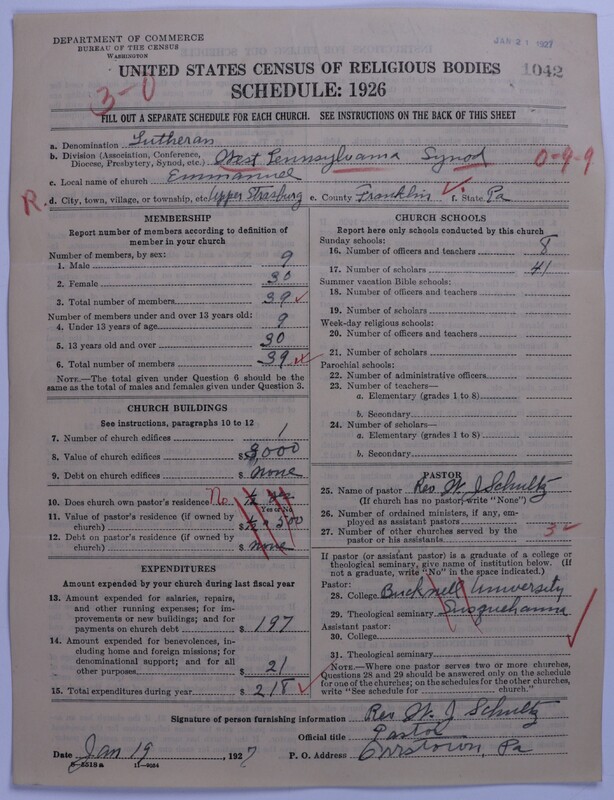 DEPARTMENT OF COMMERCE
BUREAU OF THE CENSUS
WASHINGTON
JAN 21 1927
UNITED STATES CENSUS OF RELIGIOUS BODIES
1042
SCHEDULE: 1926
3-0
FILL OUT A SEPARATE SCHEDULE FOR EACH CHURCH. SEE INSTRUCTIONS ON THE BACK OF THIS SHEET
a. Denomination Lutheran
b. Division (Association, Conference, Diocese, Presbytery, Synod, etc.) West Pennsylvania Synod 0-9-9
c. Local name of church Emmanuel
R. d. City, town, village, or township, etc. Upper Strasburg e. County Franklin f. State Pa
MEMBERSHIP
Report number of members according to definition of
member in your church
Number of members, by sex:
1. Male 9
2. Female 30
3. Total number of members 39
Number of members under and over 13 years old:
4. Under 13 years of age 9
5. 13 years old and over 30
6. Total number of members 39
NOTE.—The total given under Question 6 should be the
same as the total of males and females given under Question 3.
CHURCH BUILDINGS
See instructions, paragraphs 10 to 12
7. Number of church edifices 1
8. Value of church edifices $ 3000
9. Debt on church edifices $ none
10. Does church own pastor's residence? No
Yes or No
11. Value of pastor's residence (if owned by
church) $ 500
12. Debt on pastor's residence (if owned by
church) $ none
EXPENDITURES
Amount expended by your church during last fiscal year
13. Amount expended for salaries, repairs,
and other running expenses; for im-
provements or new buildings; and for
payments on church debt $ 197
14. Amount expended for benevolences, in-
cluding home and foreign missions; for
denominational support; and for all
other purposes $ 21
15. Total expenditures during year $ 218
CHURCH SCHOOLS
Report here only schools conducted by this church
Sunday schools:
16. Number of officers and teachers 8
17. Number of scholars 41
Summer vacation Bible schools:
18. Number of officers and teachers
19. Number of scholars
Week-day religious schools:
20. Number of officers and teachers
21. Number of scholars
Parochial schools:
22. Number of administrative officers
23. Number of teachers—
a. Elementary (grades 1 to 8)
b. Secondary
24. Number of scholars—
a. Elementary (grades 1 to 8)
b. Secondary
PASTOR
25. Name of pastor Rev W. J Schultz
(If church has no pastor, write "None")
26. Number of ordained ministers, if any, em-
ployed as assistant pastors
27. Number of other churches served by the
pastor or his assistants 3
If pastor (or assistant pastor) is a graduate of a college or
theological seminary, give name of institution below. (If
not a graduate, write "No" in the space indicated.)
Pastor:
28. College Bucknell University
29. Theological seminary Susquehanna
Assistant pastor:
30. College
31. Theological seminary
NOTE.—Where one pastor serves two or more churches,
Questions 28 and 29 should be answered only on the schedule
for one of the churches; on the schedules for the other churches,
write "See schedule for church."
Signature of person furnishing information Rev W. J Schultz
Official title Pastor
Date Jan 19, 1927 P. O. Address Orrstown, Pa
8-5518a 11-9064